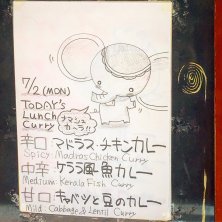 7/2(MON)
TODAY'S
Lunch
Curry
ナマシュ
カ〜ラ!!
辛口 マドラス・チキンカレー
Spicy: Madras Chicken Curry
中辛 ケララ風魚カレー
Medium: Kerala Fish Curry
甘口 キャベツと豆のカレー
Mild: Cabbage & Lentil Curry